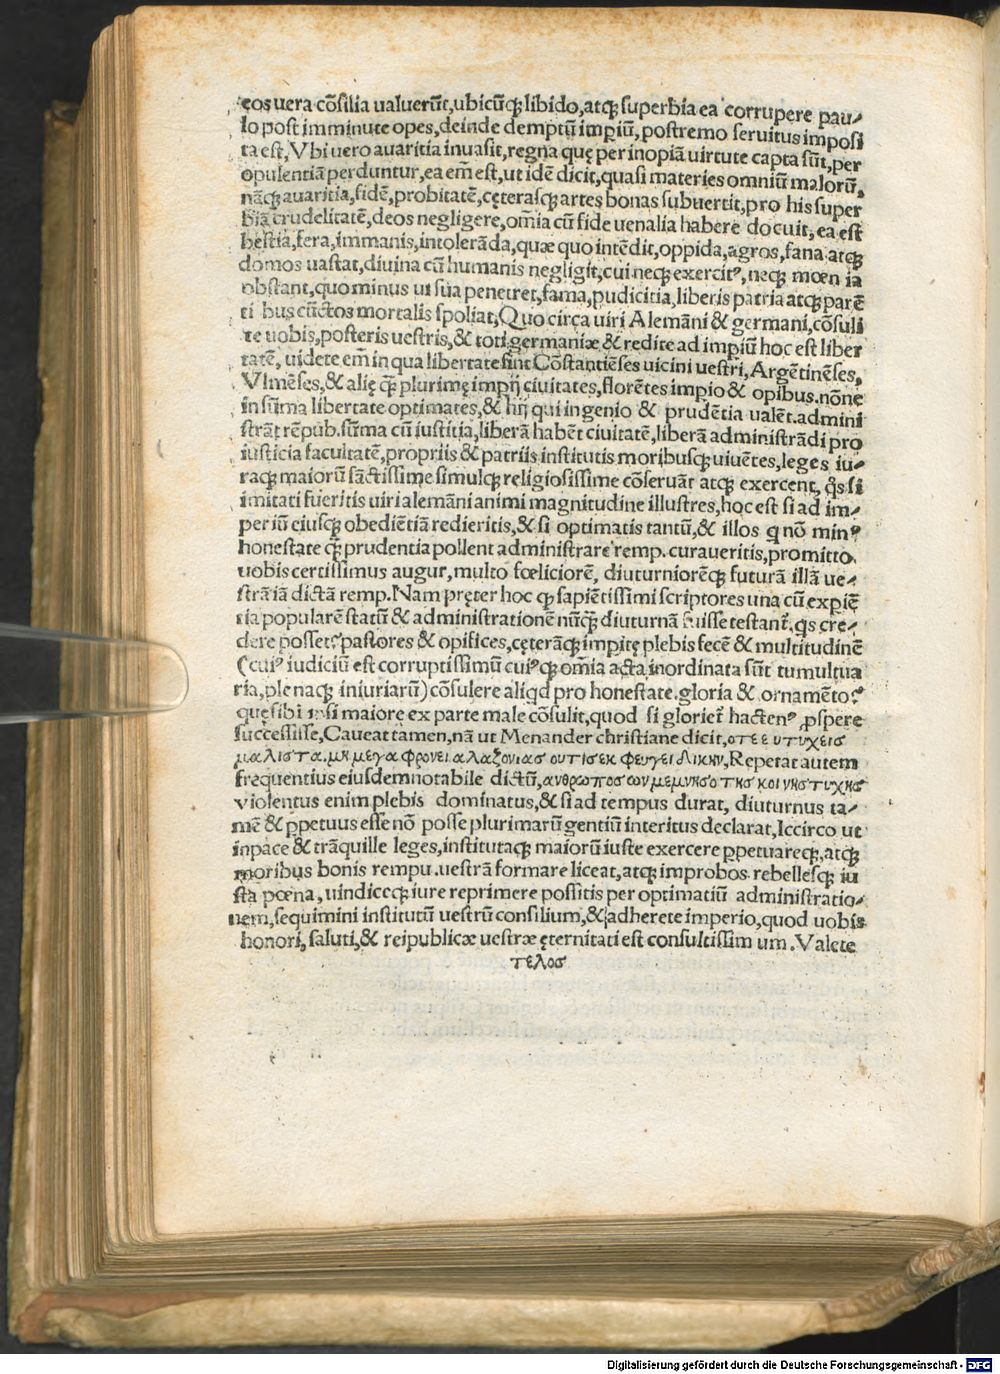 eos uera cõsilia ualuerũt, ubicũq; libido, atq; superbia ea corrupere pau-
lo post imminute opes, deinde demptũ impiũ, postremo seruitus imposi
ta est, Vbi uero auaritia inuasit, regna quę per inopiã uirtute capta sũt, per
opulentiã perduntur, ea em̃ est, ut idẽ dicit, quasi materies omniũ malorũ,
nãq; auaritia, fidẽ, probitatẽ, cęterasq; artes bonas subuertit, pro his super
biã crudelitatẽ, deos negligere, om̃ia cũ fide uenalia habere docuit, ea est
bestia, fera, immanis, intolerãda, quæ quo intẽdit, oppida, agros, fana atq;
domos uastat, diuina cũ humanis negligit, cui neq; exercitꝰ, neq; mœnia
obstant, quominus ui sua penetret, fama, pudicitia, liberis patria atq; parẽ
ti bus cũctos mortalis spoliat, Quo circa uiri Alemãni & germani, cõsuli
te uobis, posteris uestris, & toti germaniæ & redite ad impiũ hoc est liber
tatẽ, uidete em̃ in qua libertate sint Cõstantiẽses uicini uestri, Argẽtinẽses,
Vlmẽses, & alię q̃ plurimę impij ciuitates, florẽtes impio & opibus. nõne
in sũma libertate optimates, & hij qui ingenio & prudẽtia ualẽt. admini
strãt rẽpub. sũma cũ iustitia, liberã habẽt ciuitatẽ, liberã administrãdi pro
iusticia facultatẽ, propriis & patriis institutis moribusq; uiuẽtes, leges iu-
raq; maiorũ sãctissime simulq; religiosissime cõseruãt atq; exercent, q̃s si
imitati fueritis uiri alemãni animi magnitudine illustres, hoc est si ad im-
periũ eiusq; obediẽtiã redieritis, & si optimatis tantũ, & illos q nõ minꝰ
honestate q̃ prudentia pollent administrare remp. curaueritis, promitto
uobis certissimus augur, multo fœliciorẽ, diuturniorẽq; futurã illã ue-
strã iã dictã remp. Nam pręter hoc q sapiẽtissimi scriptores una cũ expiẽ
tia popularẽ statũ & administrationẽ nũq; diuturnã fuisse testant. q̃s cre-
dere posset, pastores & opifices, cęterãq; impitę plebis fecẽ & multitudinẽ
(cuiꝰ iudiciũ est corruptissimũ cuiꝰq; om̃ia acta inordinata sũt tumultua
ria, plenaq; iniuriarũ) cõsulere aliqd pro honestate. gloria & ornamẽto?
quę sibi ipsi maiore ex parte male cõsulit, quod si gloriet̃ hactenꝰ ꝓspere
successisse, Caueat tamen, nã ut Menander christiane dicit, οτε ευτυχεισ
μαλιστα. μη μεγα φρονει αλαζονιασ ουτισ εκ φευγει δικην, Repetat autem
frequentius eiusdem notabile dictũ, ανθρωποσ ων μεμνησο τησ κοινησ τυχησ
violentus enim plebis dominatus, & si ad tempus durat, diuturnus ta-
mẽ & ꝑpetuus esse nõ posse plurimarũ gentiũ interitus declarat, Iccirco ut
in pace & trãquille leges, institutaq; maiorũ iuste exercere ꝑpetuareq;, atq;
moribus bonis rempu. uestrã formare liceat, atq; improbos rebellesq; iu
sta pœna, uindiceq; iure reprimere possitis per optimatiũ administratio-
nem, sequimini institutũ uestrũ consilium, & adherete imperio, quod uobis
honori, saluti, & reipublicæ uestræ ęternitati est consultissimum. Valete
τελοσ
Digitalisierung gefördert durch die Deutsche Forschungsgemeinschaft - DFG